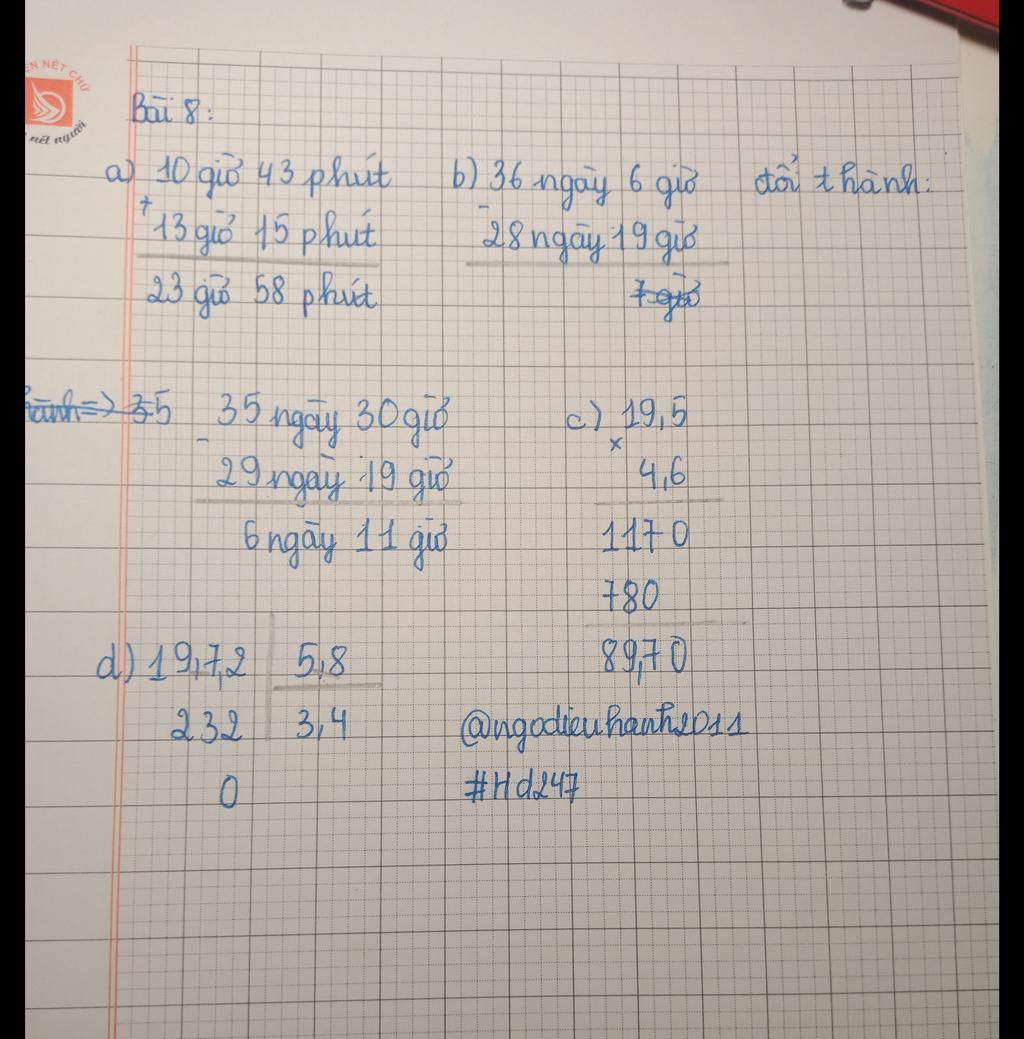 ÈN NÉT CHỮ
nết người
Bài 8:
a) 10 giờ 43 phút b) 36 ngày 6 giờ đổi thành:
+ -
13 giờ 15 phút 28 ngày 19 giờ
23 giờ 58 phút 7 giờ
hành => 35 35 ngày 30 giờ c) 19,5
- x
29 ngày 19 giờ 4,6
6 ngày 11 giờ 1170
780
d) 19,7,2 5,8 89,70
232 3,4 @ngodieuhanh2011
0 #Hd247